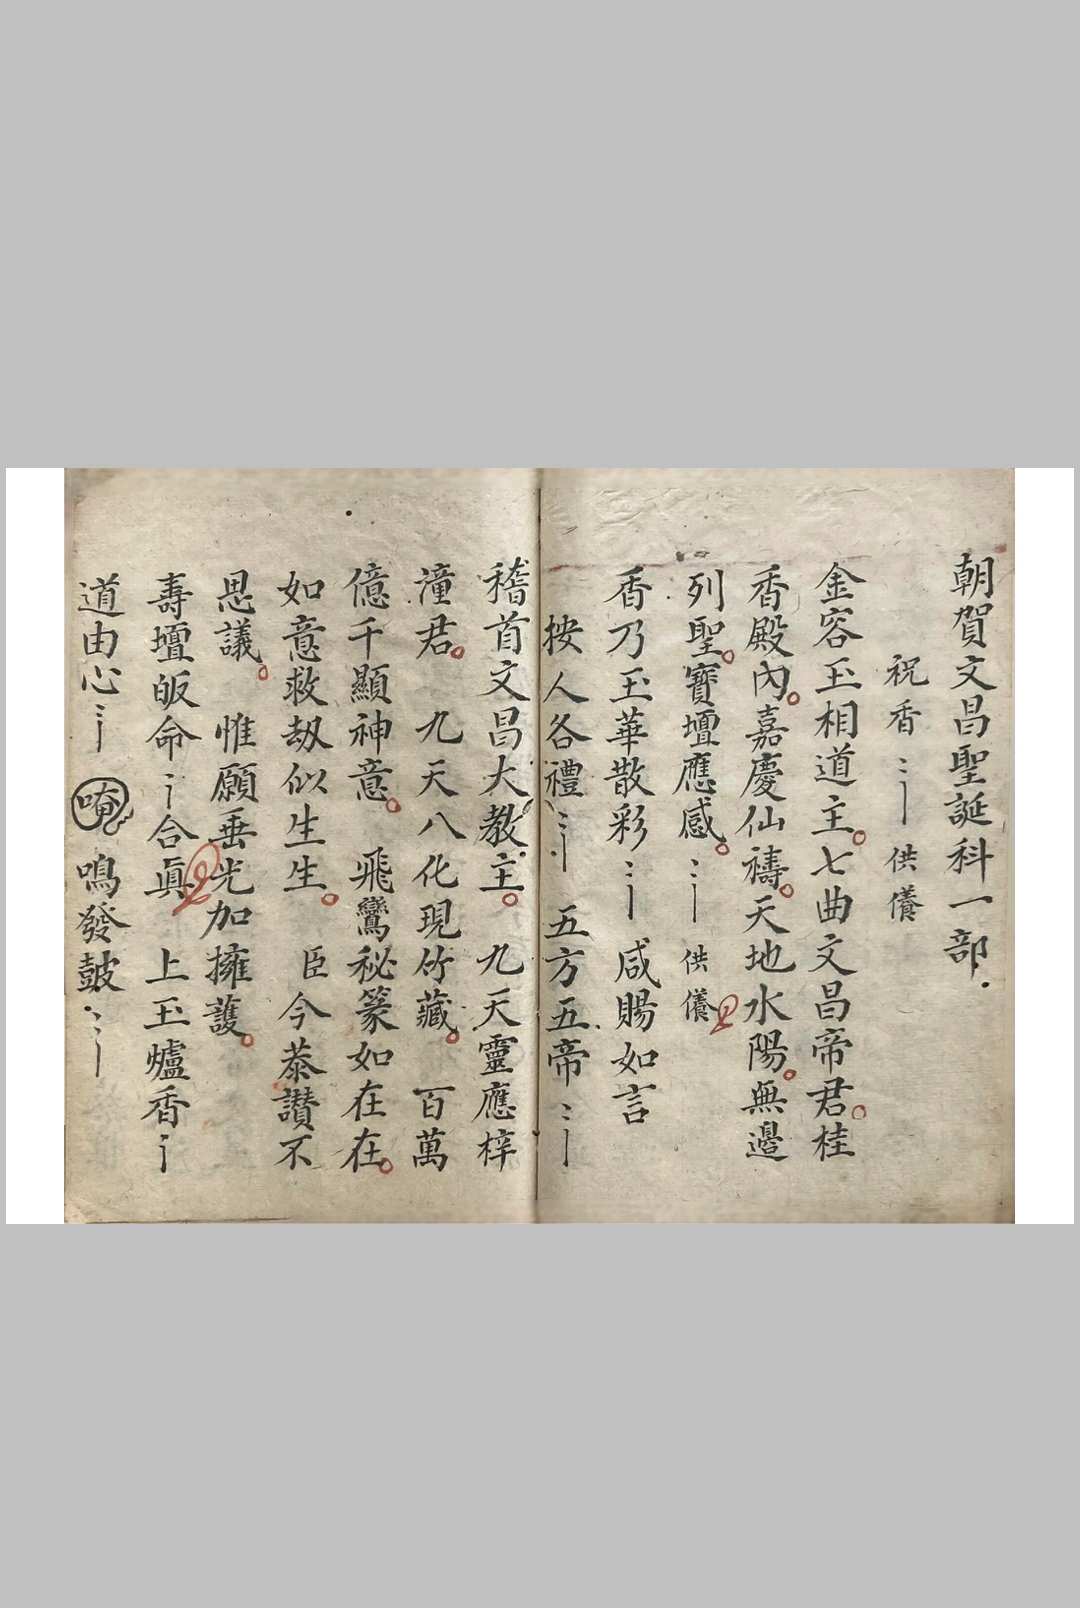 朝賀文昌聖誕科一部
祝香 供儀
金容玉相道主七曲文昌帝君桂
香殿內嘉慶仙禱天地水陽無邊
列聖寶壇應感 供儀
香乃玉華散彩 咸賜如言
按人各禮 五方五帝
稽首文昌大教主 九天靈應梓
潼君 九天八化現竹藏 百萬
億千顯神意 飛鸞秘篆如在在
如意救劫似生生 臣今恭讚不
思議 惟願垂光加擁護
壽壇皈命 合眞 上玉爐香
道由心 唵 鳴發鼓